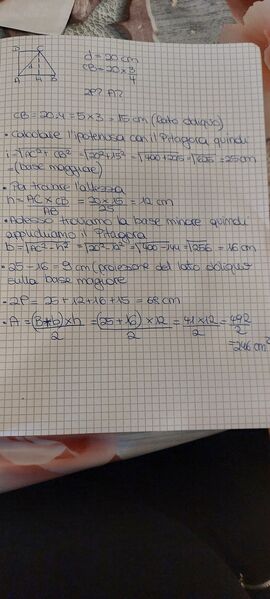 D C
A H B
d = 20 cm
CB = 20 × 3/4
2P? A?
CB = 20:4 = 5 × 3 = 15 cm (lato obliquo)
• Calcolare l'ipotenusa con il Pitagora quindi
i = √AC² + CB² = √20² + 15² = √400 + 225 = √625 = 25 cm
= (base maggiore)
• Per trovare l'altezza
h = AC × CB / AB = 20 × 15 / 25 = 12 cm
• Adesso troviamo la base minore quindi
appuchiamo il Pitagora
b = √AC² - h² = √20² - 12² = √400 - 144 = √256 = 16 cm
• 25 - 16 = 9 cm (proiezione del lato obliquo
sulla base magiore)
• 2P = 25 + 12 + 16 + 15 = 68 cm
• A = (B+b) × h / 2 = (25 + 16) × 12 / 2 = 41 × 12 / 2 = 492 / 2
= 246 cm²